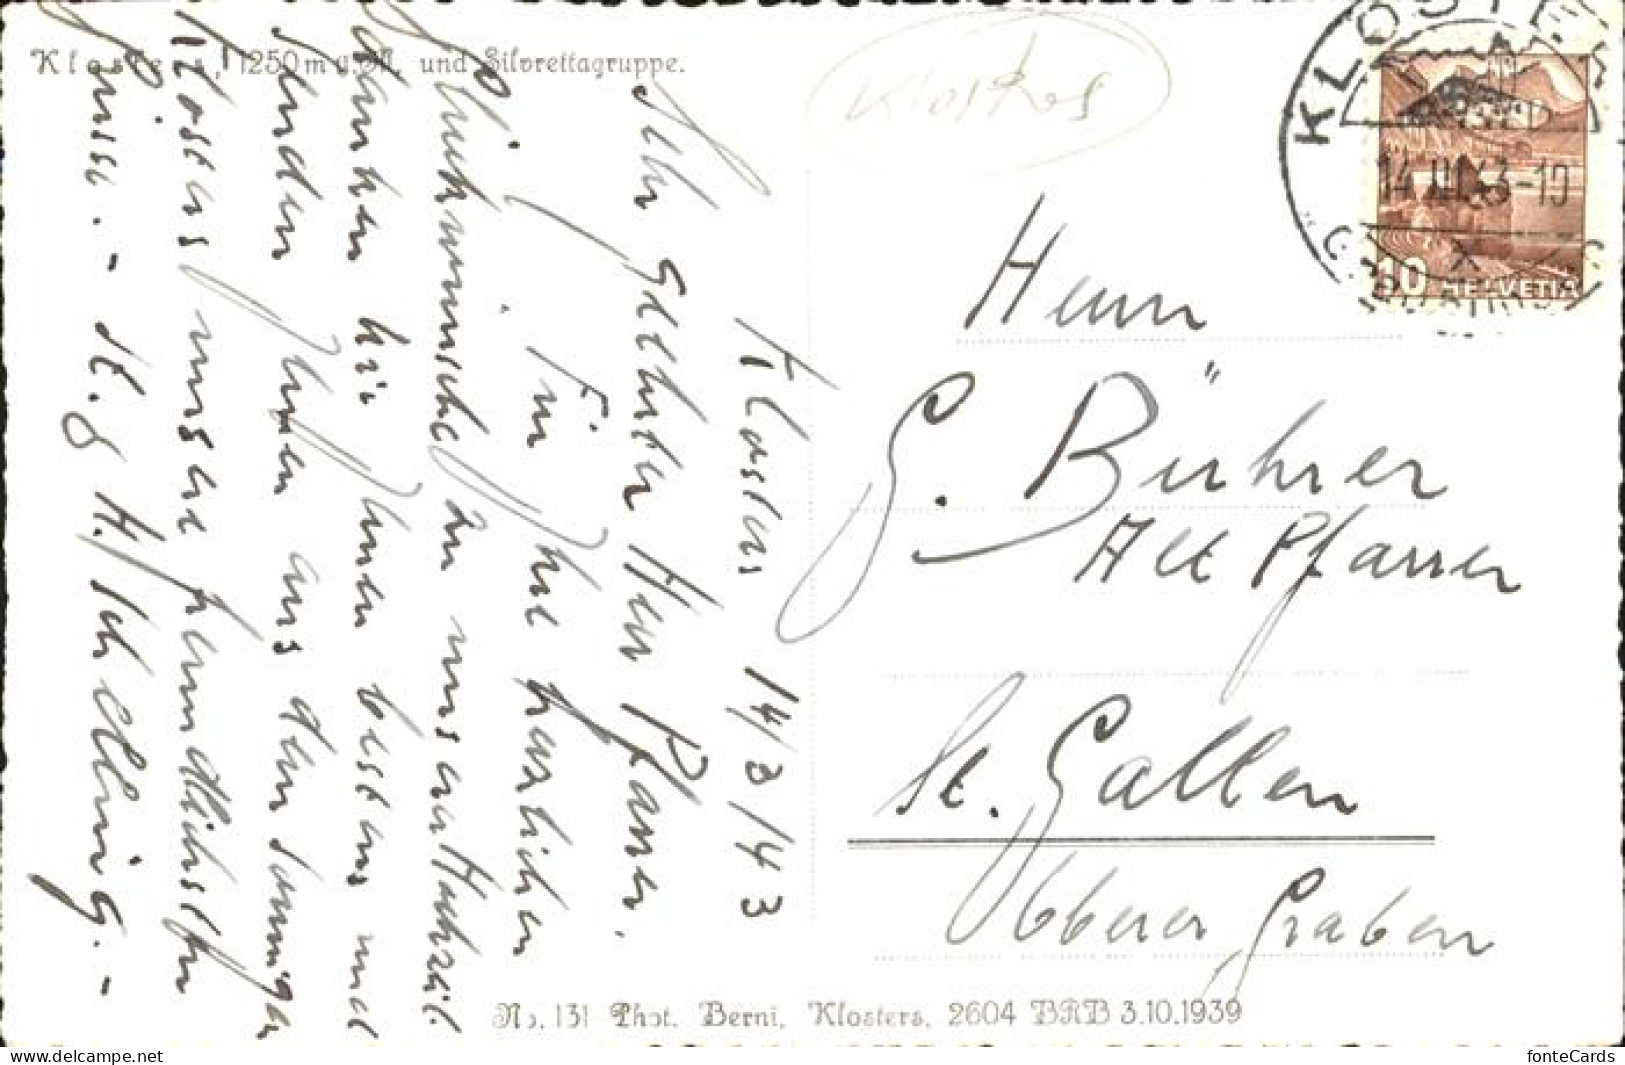 Klosters, 1250 m ü. M. und Silvrettagruppe.
Klosters
KLOSTERS
14.III.43-10
(GRAUBÜNDEN)
10 HELVETIA
Klosters 14/3/43
Sehr geehrter Herr Pfarrer.
Für Ihre herzlichen
Glückwünsche zu unserer Hochzeit
danken wir Ihnen bestens und
senden Ihnen aus dem sonnigen
Klosters unsere freundlichsten
Grüsse. - H. Schelling. -
Herrn
G. Bührer
Alt Pfarrer
St. Gallen
Oberer Graben
No. 131 Phot. Berni, Klosters, 2604 BRB 3.10.1939
www.delcampe.net
fonteCards